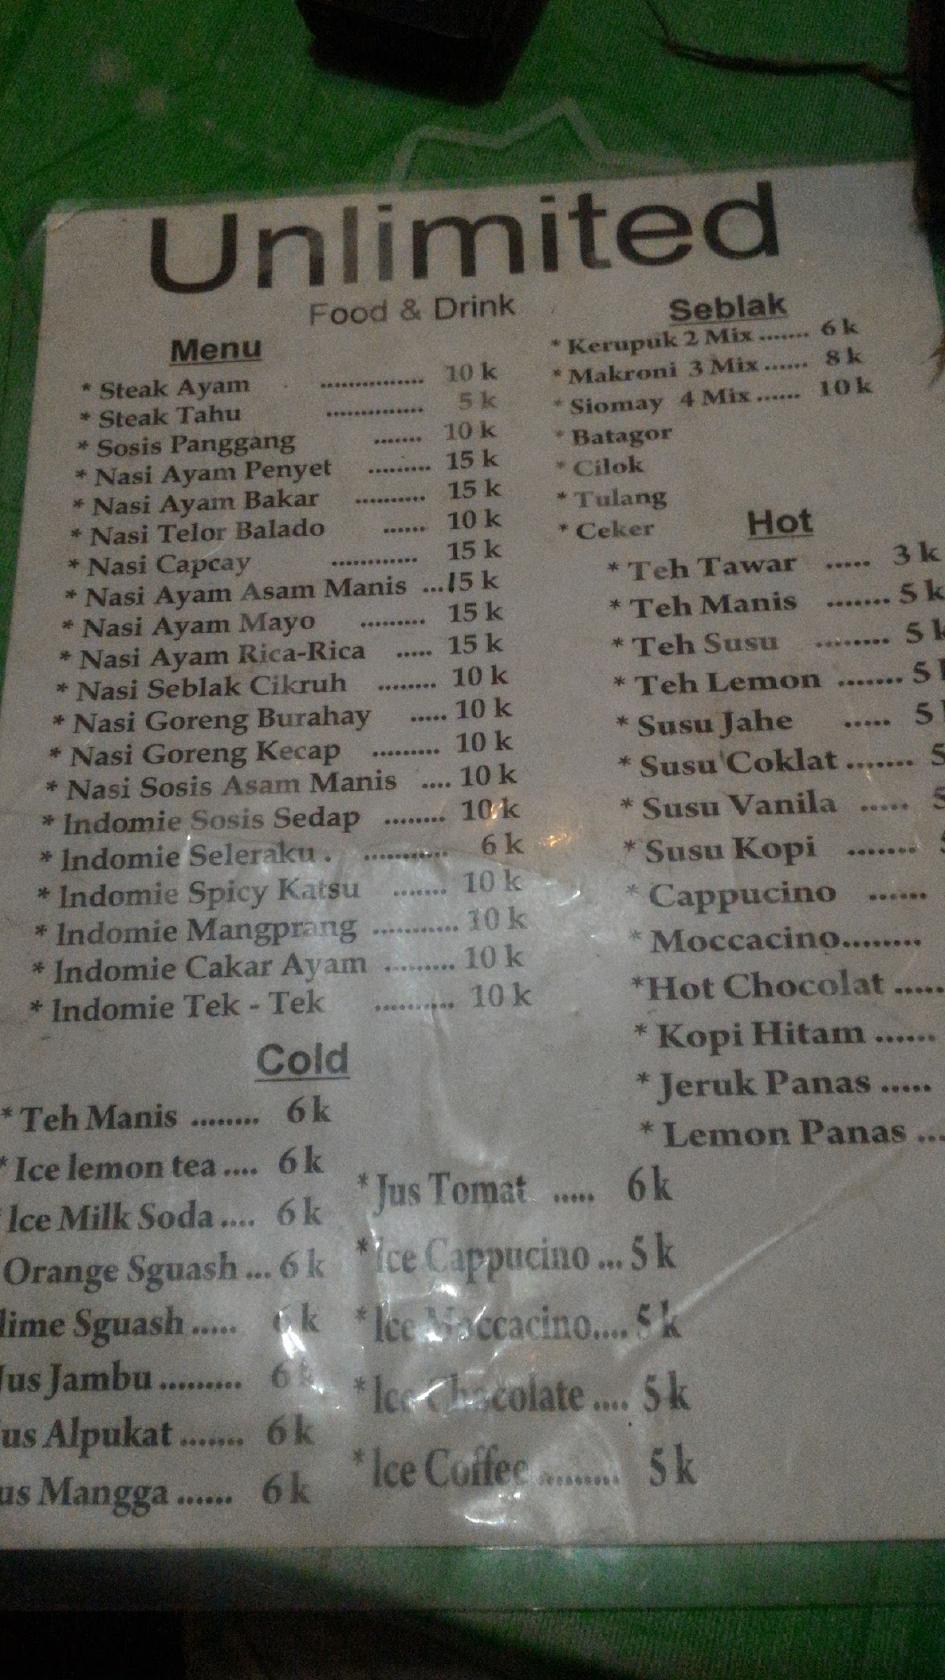 Unlimited
Food & Drink
Menu
* Steak Ayam ............... 10 k
* Steak Tahu .............. 5 k
* Sosis Panggang ....... 10 k
* Nasi Ayam Penyet ......... 15 k
* Nasi Ayam Bakar .......... 15 k
* Nasi Telor Balado ...... 10 k
* Nasi Capcay ............ 15 k
* Nasi Ayam Asam Manis ...15 k
* Nasi Ayam Mayo ......... 15 k
* Nasi Ayam Rica-Rica ..... 15 k
* Nasi Seblak Cikruh ........ 10 k
* Nasi Goreng Burahay ..... 10 k
* Nasi Goreng Kecap ......... 10 k
* Nasi Sosis Asam Manis .... 10 k
* Indomie Sosis Sedap ........ 10 k
* Indomie Seleraku . ........... 6 k
* Indomie Spicy Katsu ....... 10 k
* Indomie Mangprang ........... 10 k
* Indomie Cakar Ayam ......... 10 k
* Indomie Tek - Tek .......... 10 k
Seblak
* Kerupuk 2 Mix ....... 6 k
* Makroni 3 Mix ...... 8 k
* Siomay 4 Mix ...... 10 k
* Batagor
* Cilok
* Tulang
* Ceker
Hot
* Teh Tawar ..... 3 k
* Teh Manis ....... 5 k
* Teh Susu ........ 5 k
* Teh Lemon ....... 5
* Susu Jahe ..... 5
* Susu Coklat ....... 5
* Susu Vanila ..... 5
* Susu Kopi .......
* Cappucino ......
* Moccacino........
*Hot Chocolat .....
* Kopi Hitam ......
* Jeruk Panas .....
* Lemon Panas ...
Cold
* Teh Manis ........ 6 k
* Ice lemon tea .... 6 k
Ice Milk Soda .... 6 k
Orange Sguash ... 6 k
lime Sguash ..... 6 k
Jus Jambu ......... 6 k
us Alpukat ....... 6 k
us Mangga ...... 6 k
* Jus Tomat ..... 6 k
* Ice Cappucino ... 5 k
* Ice Moccacino.... 5 k
* Ice Chocolate .... 5 k
* Ice Coffee ......... 5 k